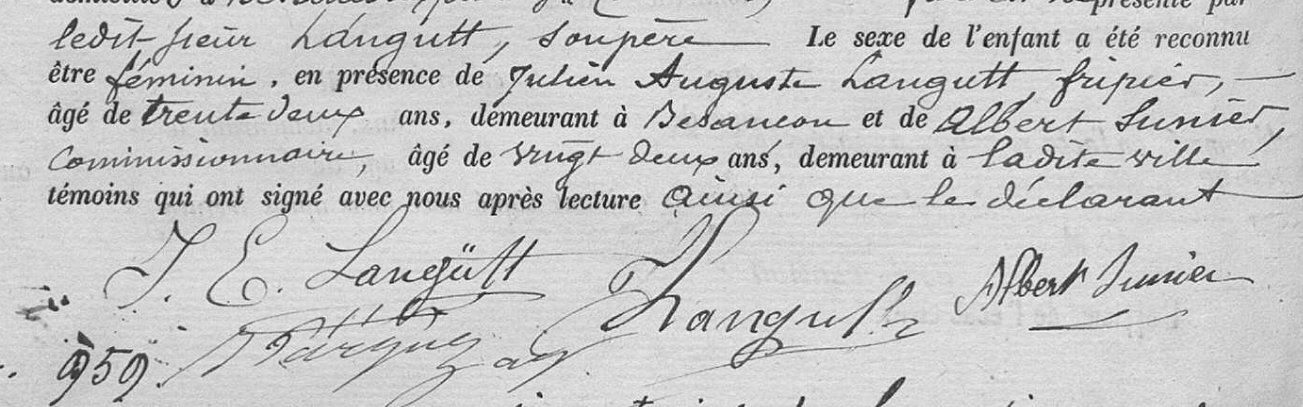 représenté par
ledit sieur Langutt, son père Le sexe de l'enfant a été reconnu
être féminin, en présence de Julien Auguste Langutt, fripier,
âgé de trente deux ans, demeurant à Besancon et de Albert Sunier,
Commissionnaire, âgé de vingt deux ans, demeurant à ladite ville
témoins qui ont signé avec nous après lecture ainsi que le déclarant
J. E. Langütt Langutt Albert Sunier
959.